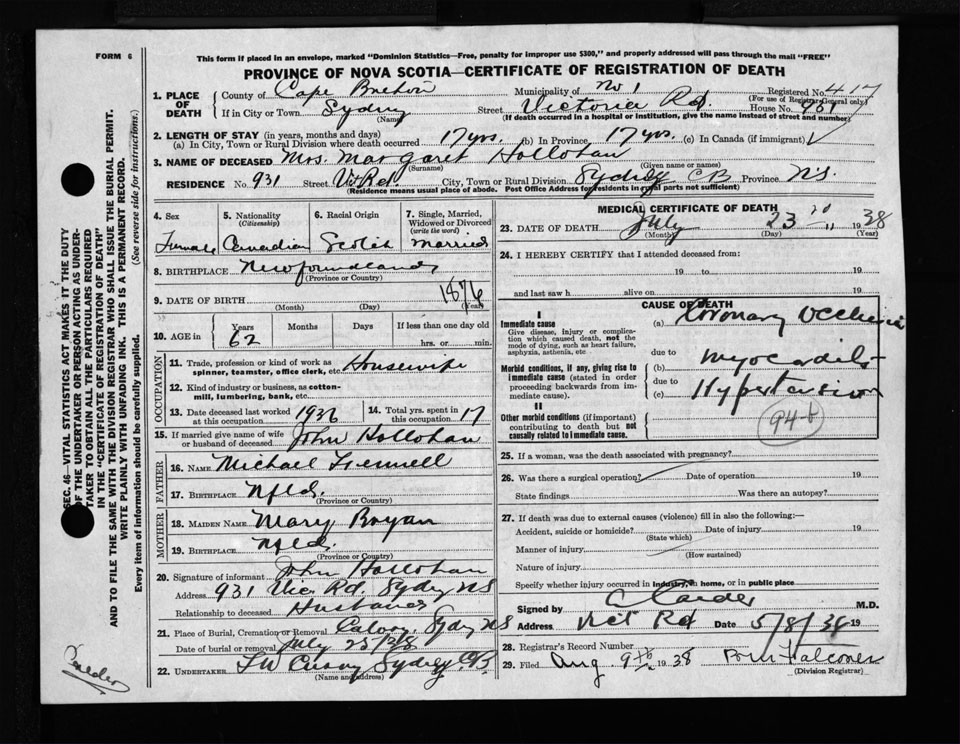 FORM 6
This form if placed in an envelope, marked "Dominion Statistics—Free, penalty for improper use $300," and properly addressed will pass through the mail "FREE"
PROVINCE OF NOVA SCOTIA—CERTIFICATE OF REGISTRATION OF DEATH
1. PLACE OF DEATH
County of Cape Breton Municipality of No 1 Registered No. 417
(For use of Registrar General only)
If in City or Town Sydney Street Victoria Rd. House No. 931
(Name) (If death occurred in a hospital or institution, give the name instead of street and number)
2. LENGTH OF STAY (in years, months and days)
(a) In City, Town or Rural Division where death occurred 17 yrs. (b) In Province 17 yrs. (c) In Canada (if immigrant)
3. NAME OF DECEASED Mrs. Margaret Hollohan
(Surname) (Given name or names)
RESIDENCE No. 931 Street Vic. Rd. City, Town or Rural Division Sydney CB Province N.S.
(Residence means usual place of abode. Post Office Address for residents in rural parts not sufficient)
4. Sex 5. Nationality (Citizenship) 6. Racial Origin 7. Single, Married, Widowed or Divorced (write the word)
Female Canadian Scotch Married
8. BIRTHPLACE Newfoundland
(Province or Country)
9. DATE OF BIRTH 1876
(Month) (Day) (Year)
10. AGE in Years Months Days If less than one day old
62 hrs. or min.
OCCUPATION
11. Trade, profession or kind of work as spinner, teamster, office clerk, etc. Housewife
12. Kind of industry or business, as cotton-mill, lumbering, bank, etc.
13. Date deceased last worked at this occupation 1938 14. Total yrs. spent in this occupation 17
15. If married give name of wife or husband of deceased John Hollohan
FATHER
16. NAME Michael Fennell
17. BIRTHPLACE Nfld.
(Province or Country)
MOTHER
18. MAIDEN NAME Mary Bryan
19. BIRTHPLACE Nfld.
(Province or Country)
20. Signature of informant John Hollohan
Address 931 Vic. Rd. Sydney NS
Relationship to deceased Husband
21. Place of Burial, Cremation or Removal Calvary, Sydney NS
Date of burial or removal July 25/38
22. UNDERTAKER Curry Sydney CB
(Name and address)
MEDICAL CERTIFICATE OF DEATH
23. DATE OF DEATH July 23 1938
(Month) (Day) (Year)
24. I HEREBY CERTIFY that I attended deceased from:
19 to 19
and last saw h alive on 19
CAUSE OF DEATH
I
Immediate cause (a) Coronary Occlusion
Give disease, injury or complication which caused death, not the mode of dying, such as heart failure, asphyxia, asthenia, etc
due to
(b) Myocarditis
Morbid conditions, if any, giving rise to immediate cause (stated in order proceeding backwards from immediate cause).
due to
(c) Hypertension
94-b
II
Other morbid conditions (if important) contributing to death but not causally related to immediate cause.
25. If a woman, was the death associated with pregnancy?
26. Was there a surgical operation? Date of operation 19
State findings Was there an autopsy?
27. If death was due to external causes (violence) fill in also the following:—
Accident, suicide or homicide? Date of injury 19
(State which)
Manner of injury
(How sustained)
Nature of injury
Specify whether injury occurred in industry, in home, or in public place
Signed by M.D.
Address Vict Rd Date 5/8/38 19
28. Registrar's Record Number
29. Filed Aug 9th 1938 Falconer
(Division Registrar)
SEC. 46—VITAL STATISTICS ACT MAKES IT THE DUTY
OF THE UNDERTAKER OR PERSON ACTING AS UNDER-
TAKER TO OBTAIN ALL THE PARTICULARS REQUIRED
IN THE "CERTIFICATE OF REGISTRATION OF DEATH"
AND TO FILE THE SAME WITH THE DIVISION REGISTRAR WHO SHALL ISSUE THE BURIAL PERMIT.
WRITE PLAINLY WITH UNFADING INK. THIS IS A PERMANENT RECORD.
Every item of information should be carefully supplied. (See reverse side for instructions.)